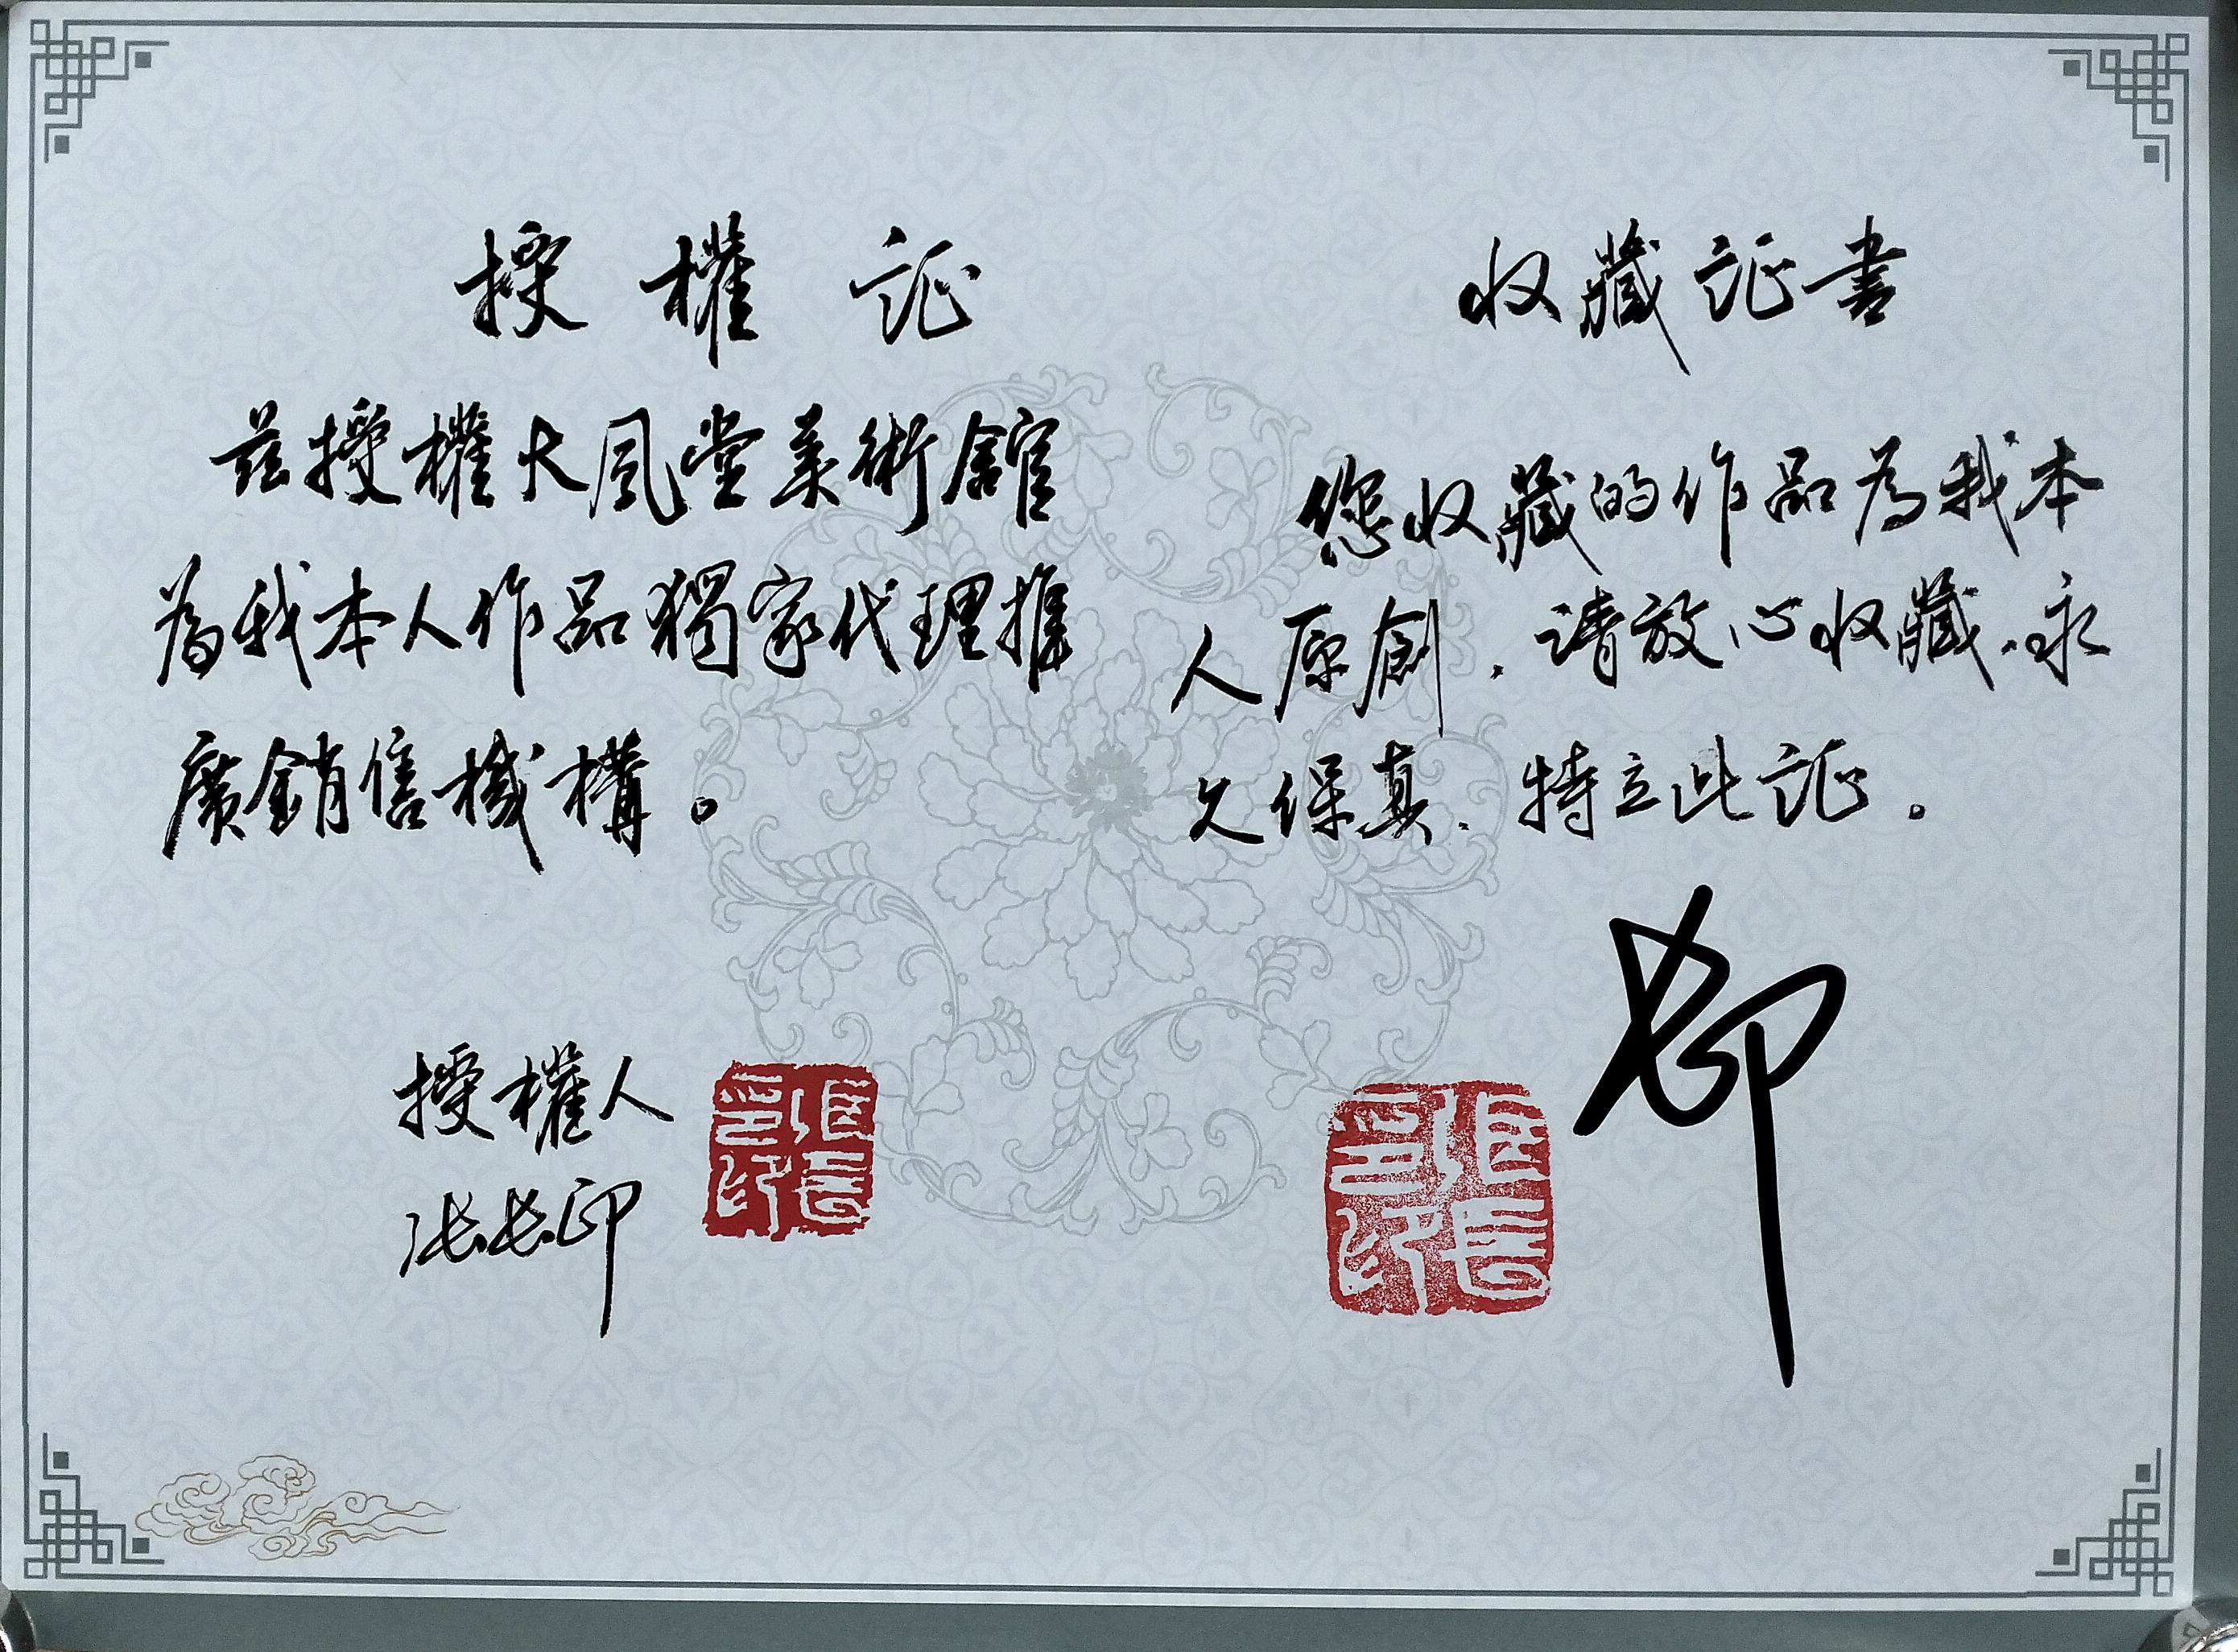 授權证
兹授權大風堂美術館
為我本人作品獨家代理推
廣銷售機構。
授權人
张长印
收藏证書
您收藏的作品為我本
人原創，请放心收藏，永
久保真，特立此证。